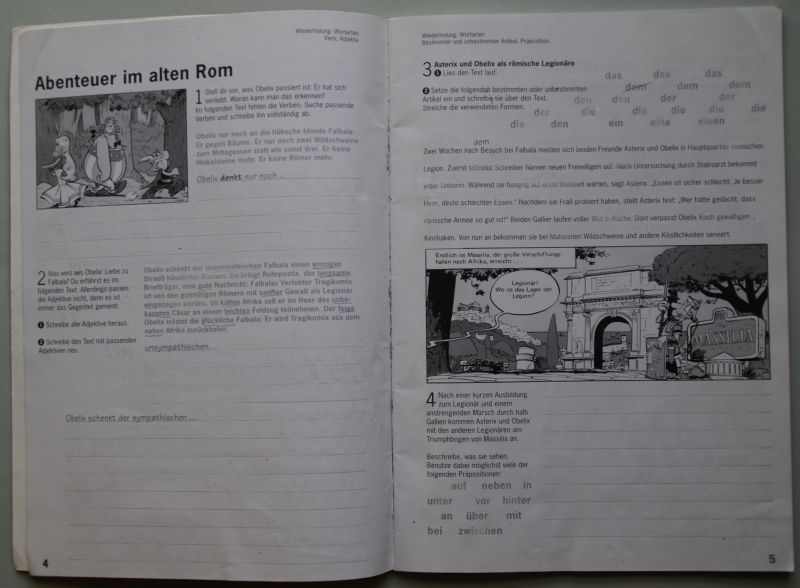 Wiederholung: Wortarten
Verb, Adjektiv
Abenteuer im alten Rom
1 Stell dir vor, was Obelix passiert ist: Er hat sich
verliebt. Woran kann man das erkennen?
Im folgenden Text fehlen die Verben. Suche passende
Verben und schreibe ihn vollständig ab.
Obelix nur noch an die hübsche blonde Falbala.
Er gegen Bäume. Er nur noch zwei Wildschweine
zum Mittagessen statt wie sonst drei. Er keine
Hinkelsteine mehr. Er keine Römer mehr.
Obelix denkt nur noch ...
2 Was wird aus Obelix' Liebe zu
Falbala? Du erfährst es im
folgenden Text. Allerdings passen
die Adjektive nicht, denn es ist
immer das Gegenteil gemeint.
❶ Schreibe alle Adjektive heraus.
❷ Schreibe den Text mit passenden
Adjektiven neu.
Obelix schenkt der unsympathischen Falbala einen winzigen
Strauß hässlicher Blumen. Da bringt Rohrpostix, der langsame
Briefträger, eine gute Nachricht: Falbalas Verlobter Tragikomix
ist von den gutmütigen Römern mit sanfter Gewalt als Legionär
eingezogen worden. Im kalten Afrika soll er im Heer des unbe-
kannten Cäsar an einem leichten Feldzug teilnehmen. Der feige
Obelix tröstet die glückliche Falbala: Er wird Tragikomix aus dem
nahen Afrika zurückholen.
unsympathischen, ..
Obelix schenkt der sympathischen ...
4
Wiederholung: Wortarten
Bestimmter und unbestimmter Artikel, Präposition
3 Asterix und Obelix als römische Legionäre
❶ Lies den Text laut.
❷ Setze die folgenden bestimmten oder unbestimmten
Artikel ein und schreibe sie über den Text.
Streiche die verwendeten Formen.
das das das
dem dem dem
den den der der
der die die die die die
die den ein eine einen
dem
Zwei Wochen nach Besuch bei Falbala melden sich beiden Freunde Asterix und Obelix in Hauptquartier römischen
Legion. Zuerst schreibt Schreiber Namen neuen Freiwilligen auf. Nach Untersuchung durch Stabsarzt bekommt
jeder Uniform. Während sie hungrig auf erste Mahlzeit warten, sagt Asterix: „Essen ist sicher schlecht. Je besser
Heer, desto schlechter Essen." Nachdem sie Fraß probiert haben, stellt Asterix fest: „Wer hätte gedacht, dass
römische Armee so gut ist!" Beiden Gallier laufen voller Wut in Küche. Dort verpasst Obelix Koch gewaltigen
Kinnhaken. Von nun an bekommen sie bei Mahlzeiten Wildschweine und andere Köstlichkeiten serviert.
Endlich ist Massilia, der große Verschiffungs-
hafen nach Afrika, erreicht ...
Legionär!
Wo ist das Lager der
Legion?
MASSILIA
4 Nach einer kurzen Ausbildung
zum Legionär und einem
anstrengenden Marsch durch halb
Gallien kommen Asterix und Obelix
mit den anderen Legionären am
Triumphbogen von Massilia an.
Beschreibe, was sie sehen.
Benutze dabei möglichst viele der
folgenden Präpositionen:
auf neben in
unter vor hinter
an über mit
bei zwischen
5